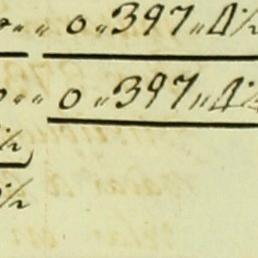 „ 0 „ 397 „ 4½
„ 0 „ 397 „ 4½
½
½